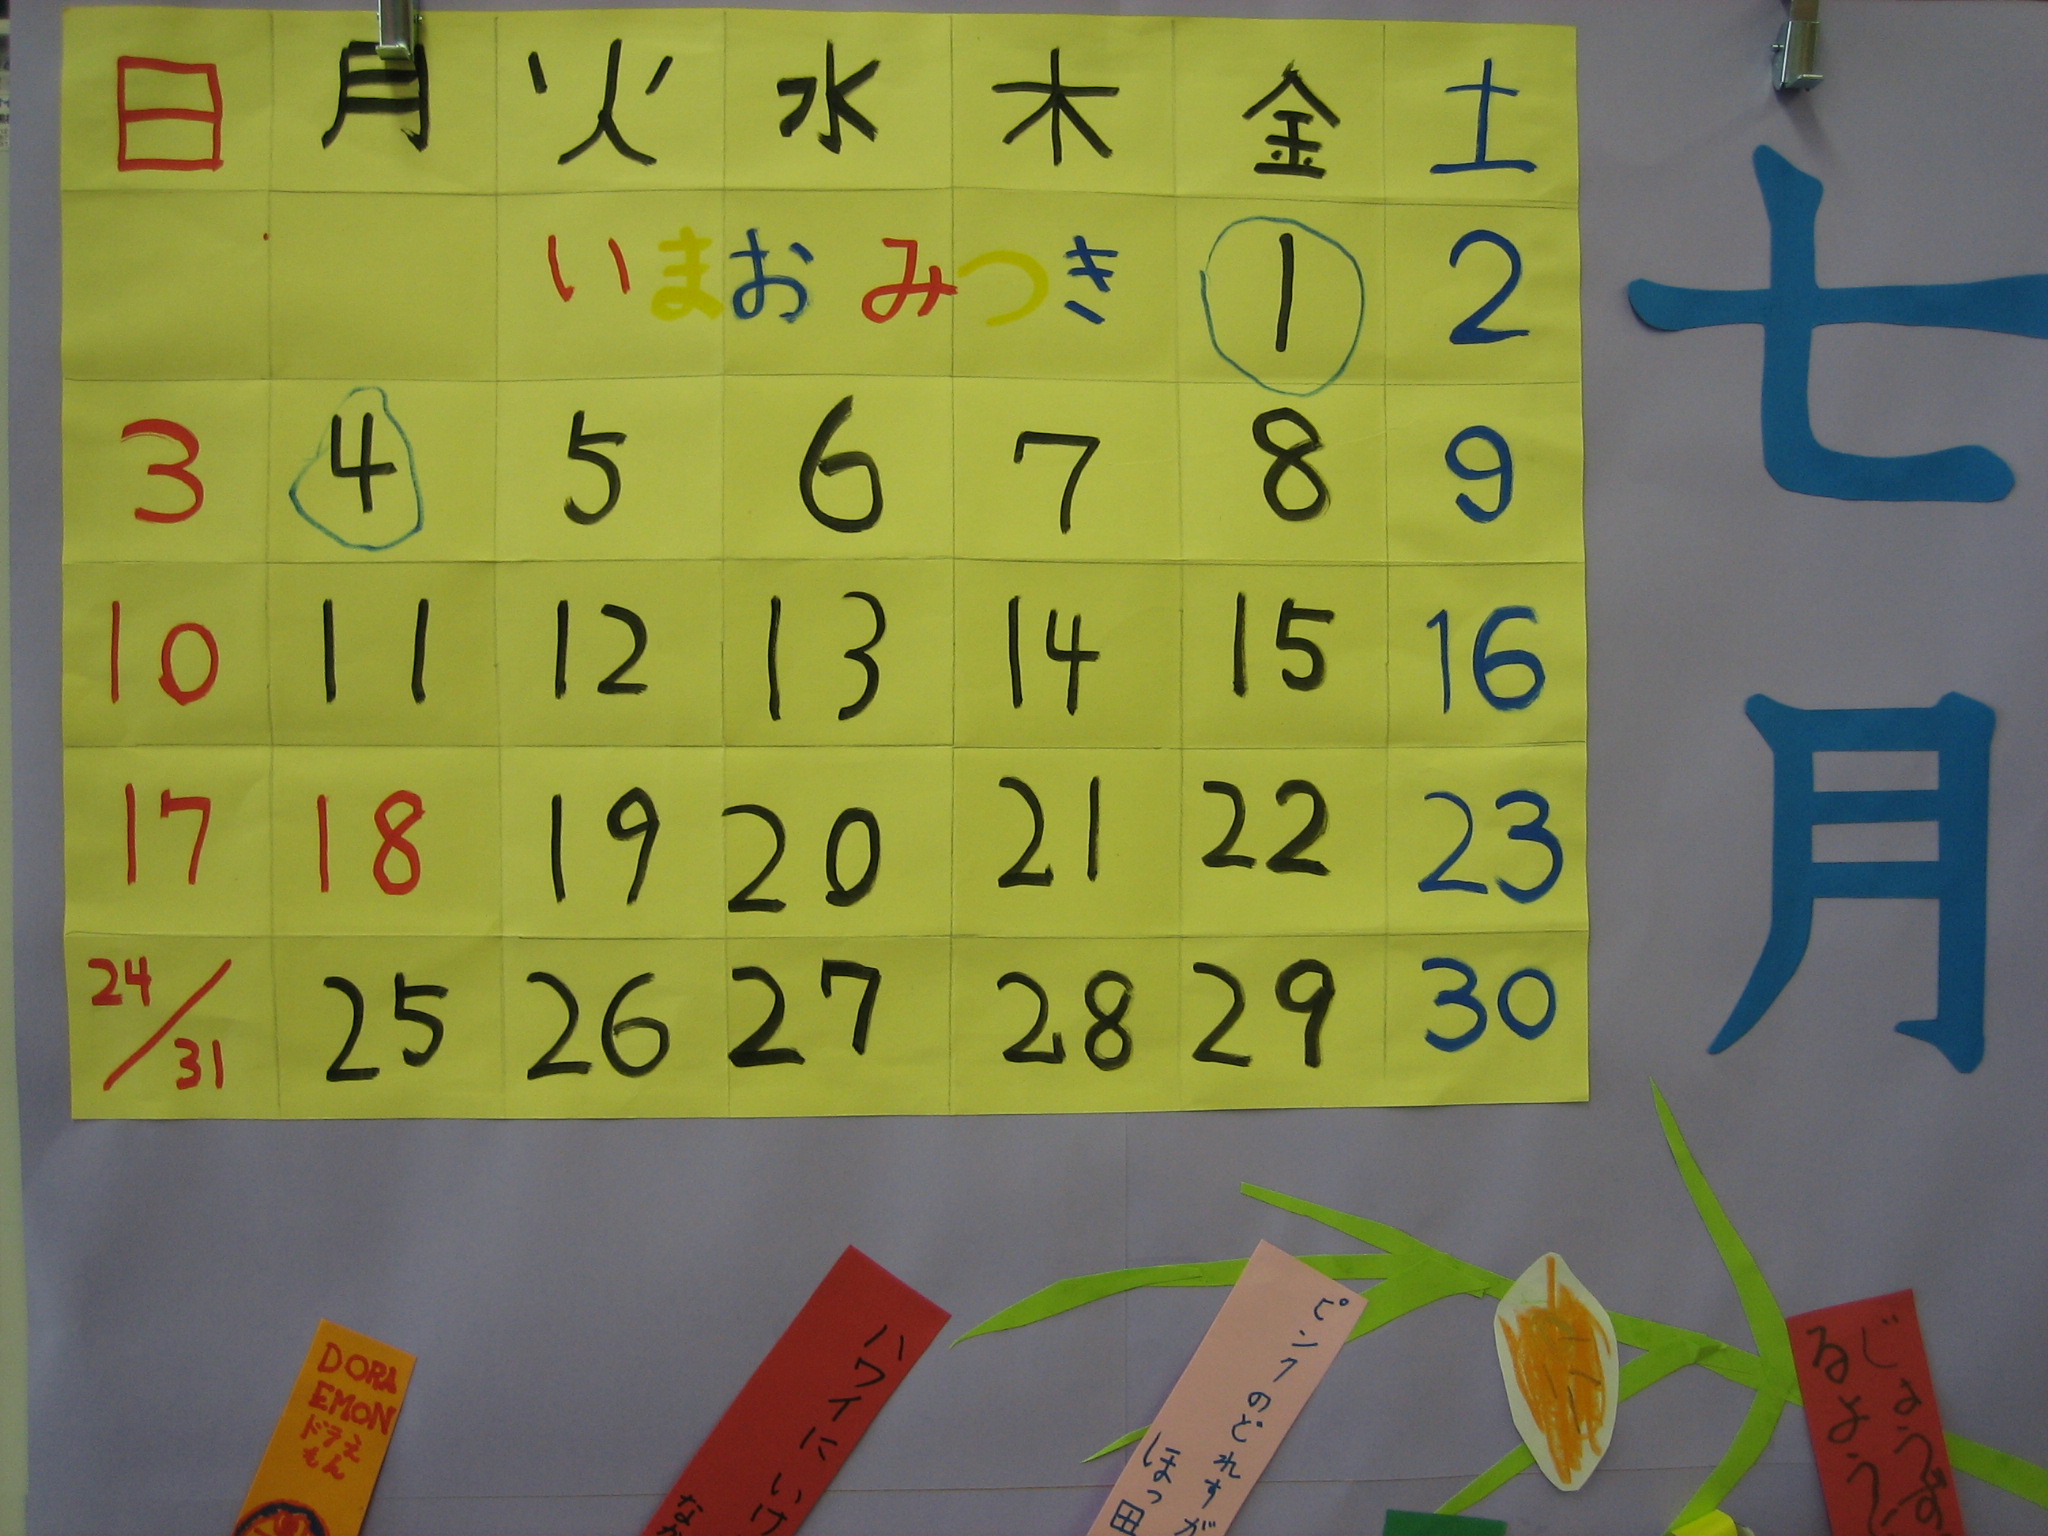 日 月 火 水 木 金 土
いまおみつき 1 2
3 4 5 6 7 8 9
10 11 12 13 14 15 16
17 18 19 20 21 22 23
24/31 25 26 27 28 29 30
七月
DORA
EMON
ドラえ
もん
ハワイにいけ
ピンクのどれすが
ほっ田
じょうず
るよう